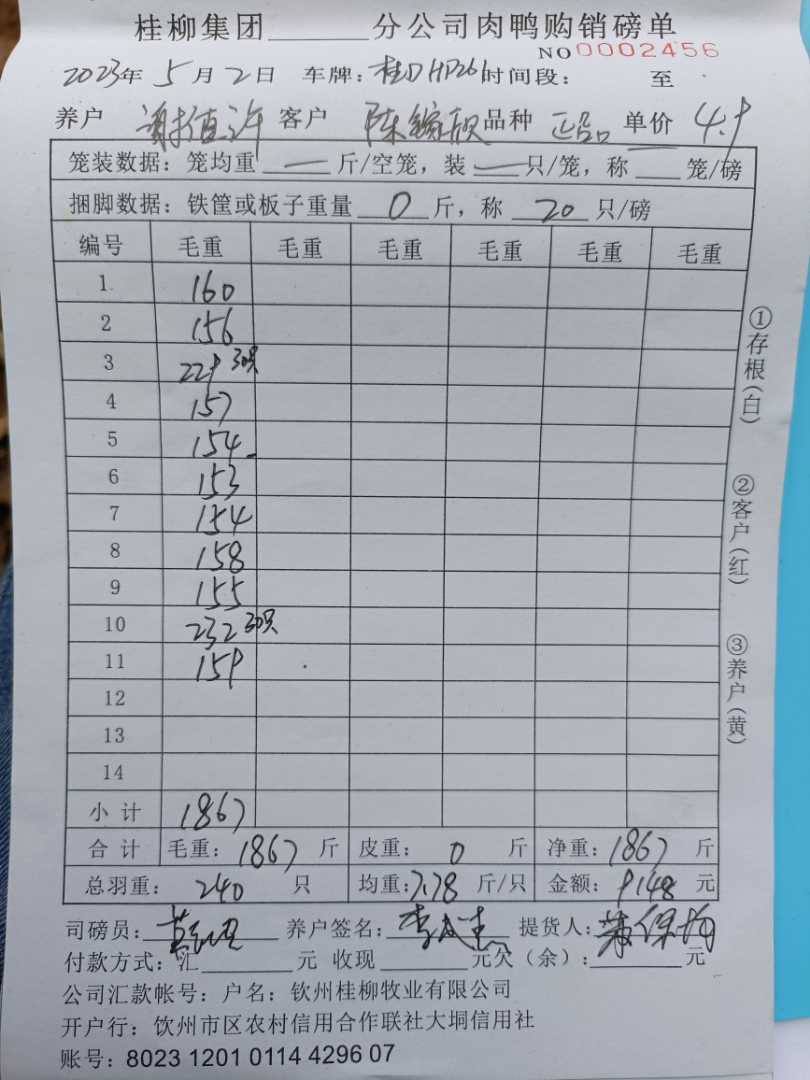 桂柳集团______分公司肉鸭购销磅单
NO 0002456
2023年 5月2日 车牌: 时间段: 至
养户 客户 陈 品种 正品 单价 4.9
笼装数据: 笼均重 — 斤/空笼, 装 — 只/笼, 称 笼/磅
捆脚数据: 铁筐或板子重量 0 斤, 称 20 只/磅
编号 毛重 毛重 毛重 毛重 毛重 毛重
1 160
2 156
3 229 30只
4 157
5 154
6 153
7 154
8 158
9 155
10 232 30只
11 159
12
13
14
小计 1867
合计 毛重: 1867 斤 皮重: 0 斤 净重: 1867 斤
总羽重: 240 只 均重: 7.78 斤/只 金额: 9148 元
司磅员: 养户签名: 提货人:
付款方式: 汇______元 收现______元欠(余):______元
公司汇款帐号: 户名: 钦州桂柳牧业有限公司
开户行: 饮州市区农村信用合作联社大垌信用社
账号: 8023 1201 0114 4296 07
①存根(白)
②客户(红)
③养户(黄)